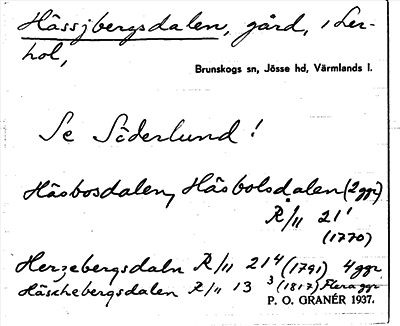 Hässjbergsdalen, gård, i Ler-
hol,
Brunskogs sn, Jösse hd, Värmlands l.
Se Söderlund!
Häsbosdalen, Häsbolsdalen (2 ggr)
R/11 21¹
(1770)
Herzebergsdaln R/11 21⁴ (1791) 4 ggr
Häschebergsdalen R/11 13³ (1817) Flera ggr
P. O. GRANÉR 1937.